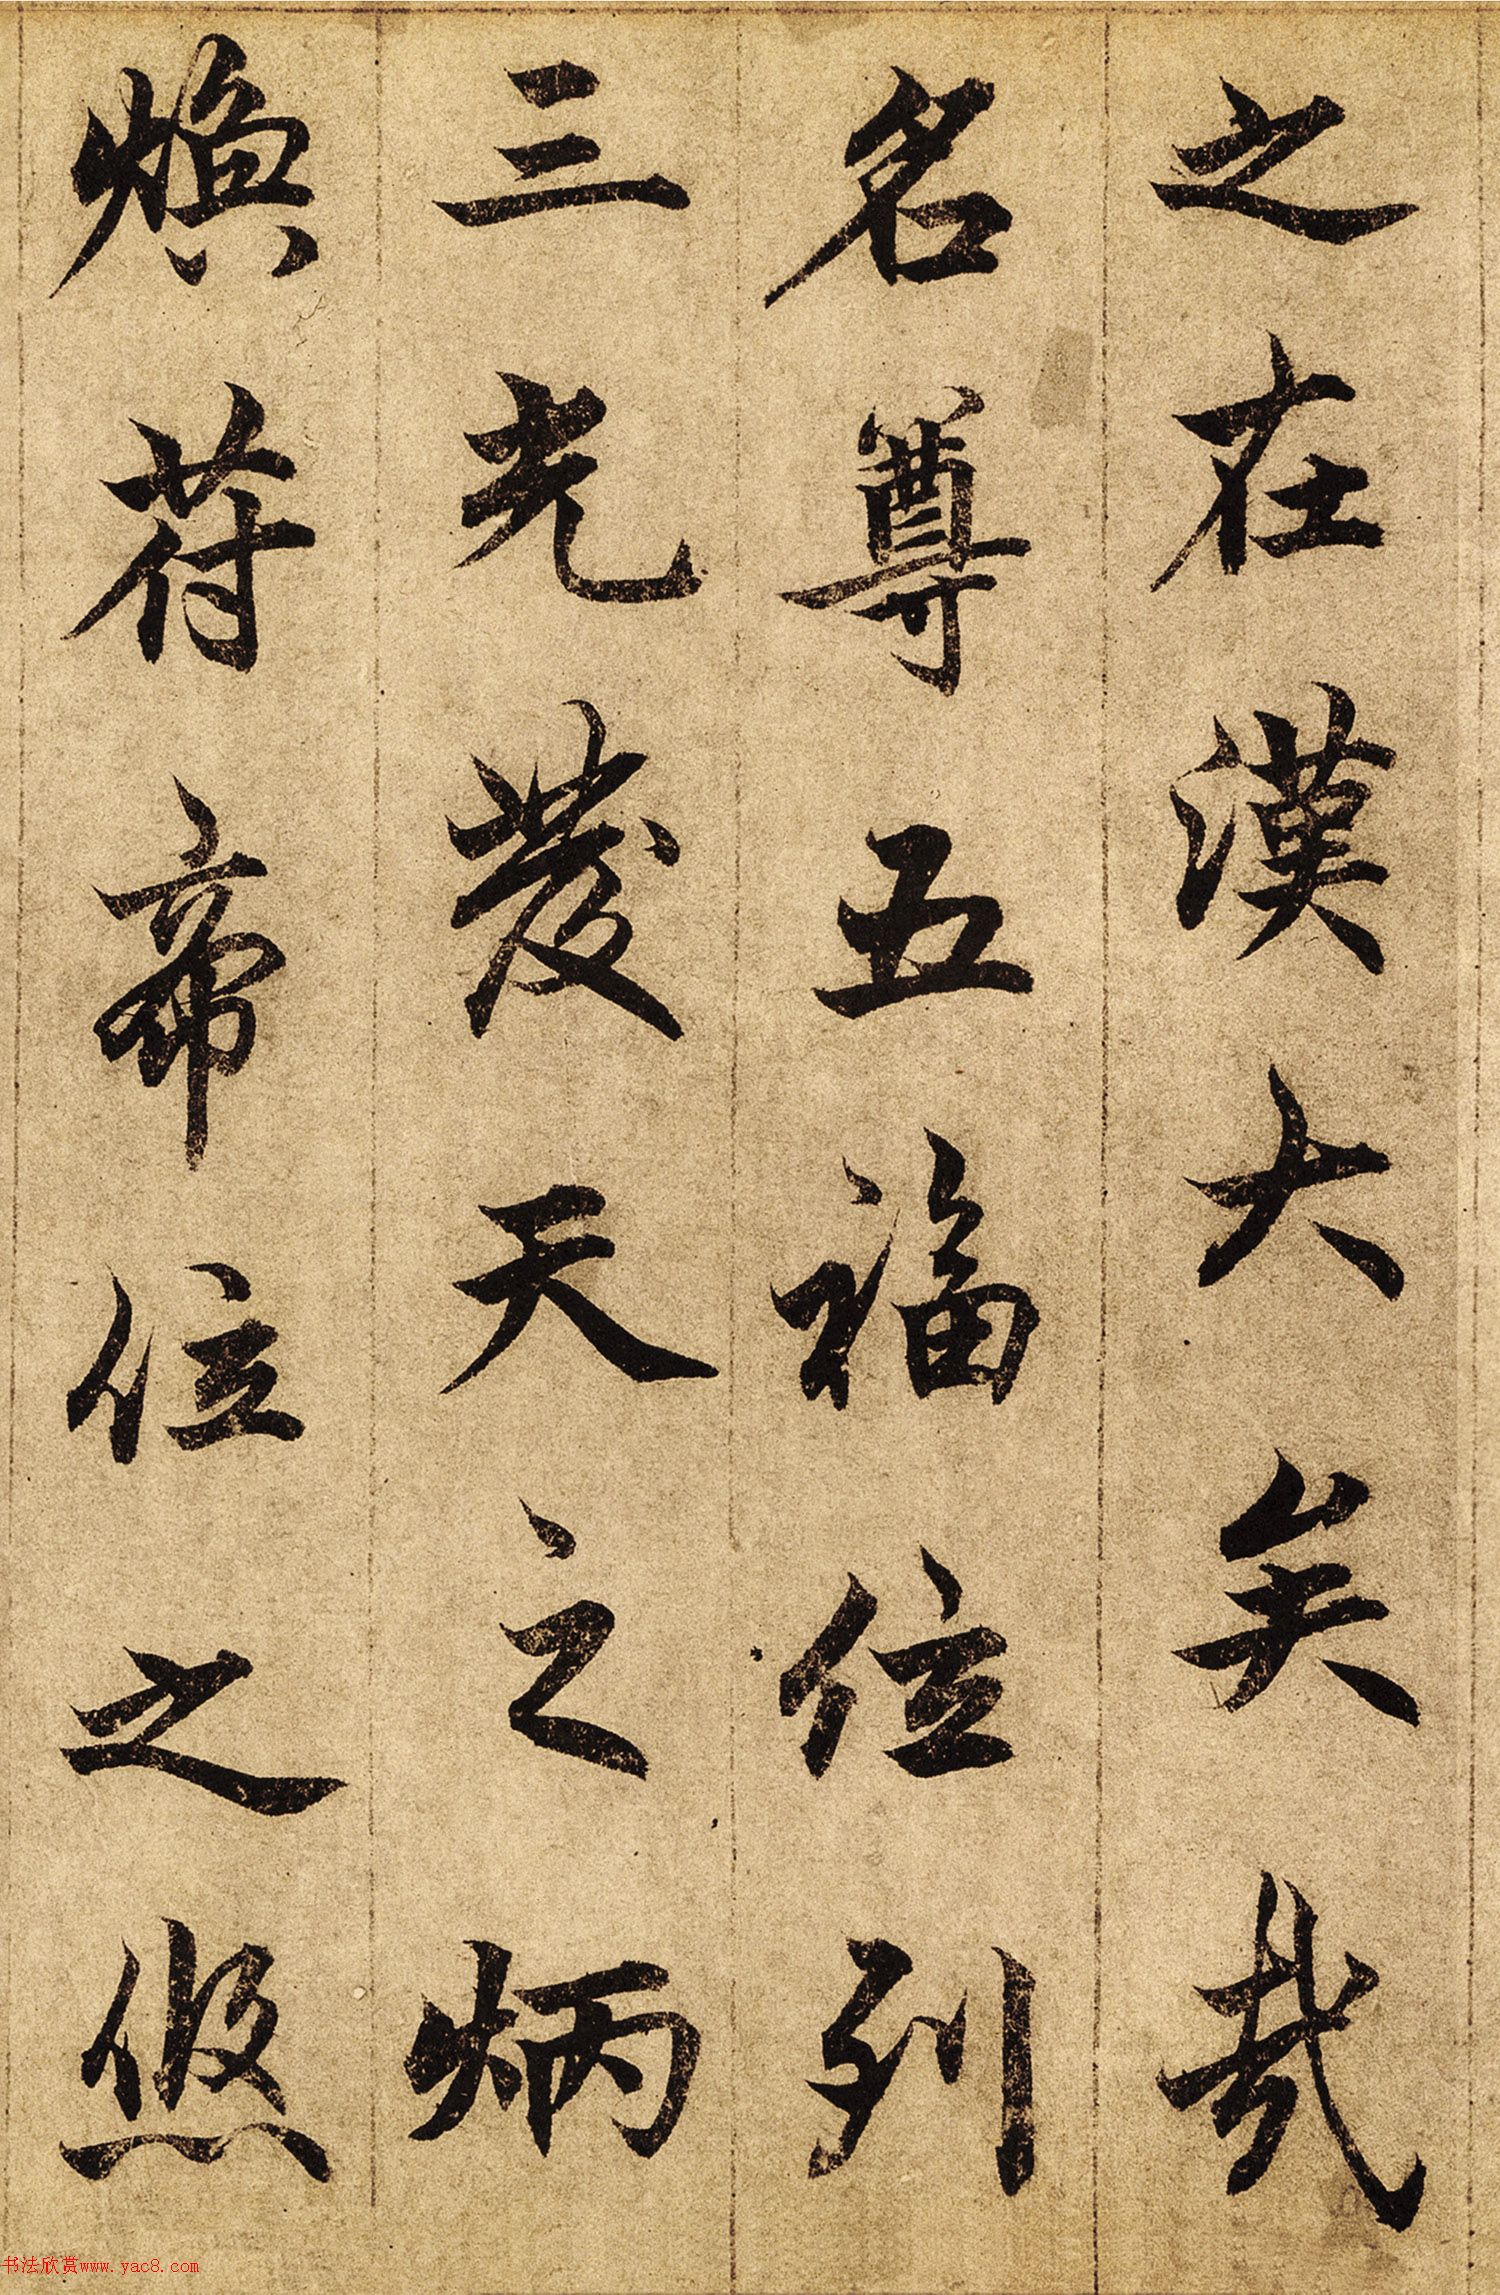 之在漢大矣哉
名尊五福位列
三光發天之炳
煥苻帝位之悠
书法欣赏www.yac8.com